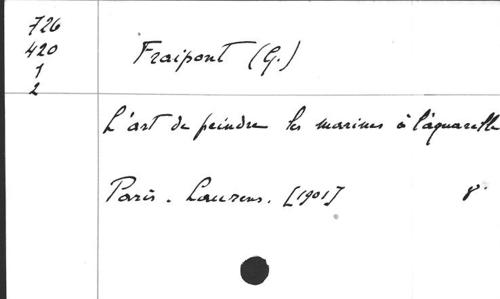 726
420
1
2
Fraipont (G.)
L'art de peindre les marines à l'aquarelle
Paris. Laurens. [1901] 8°